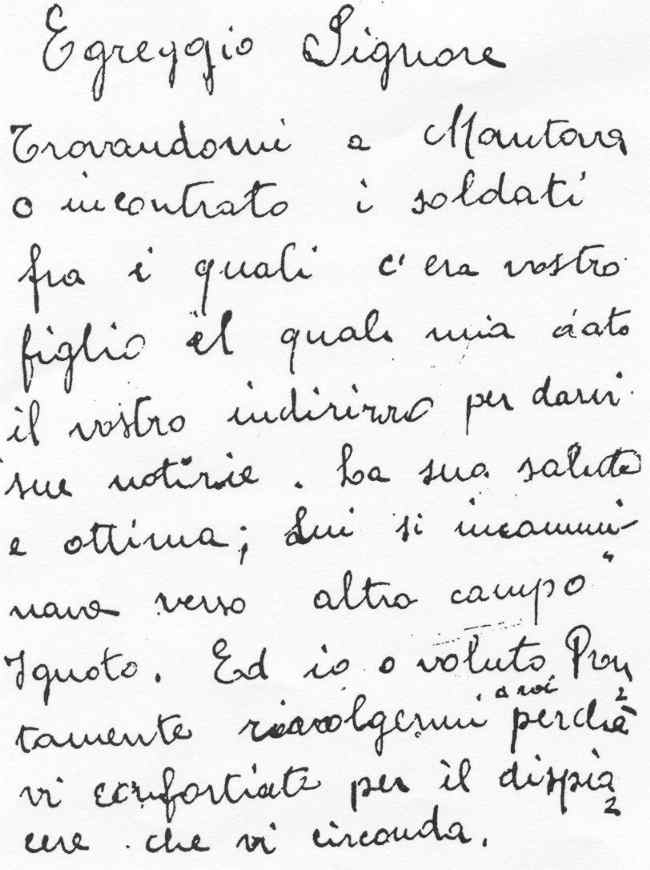 Egreggio Signore
Trovandomi a Mantova
o incontrato i soldati
fra i quali c'era vostro
figlio il quale mia dato
il vostro indirizzo per darvi
sue notizie. La sua salute
e ottima; Lui si incammi-
nava verso altro campo"
Ignoto. Ed io o voluto Pron
tamente rivolgermi a voi perchè
vi confortiate per il dispia
cere che vi circonda.